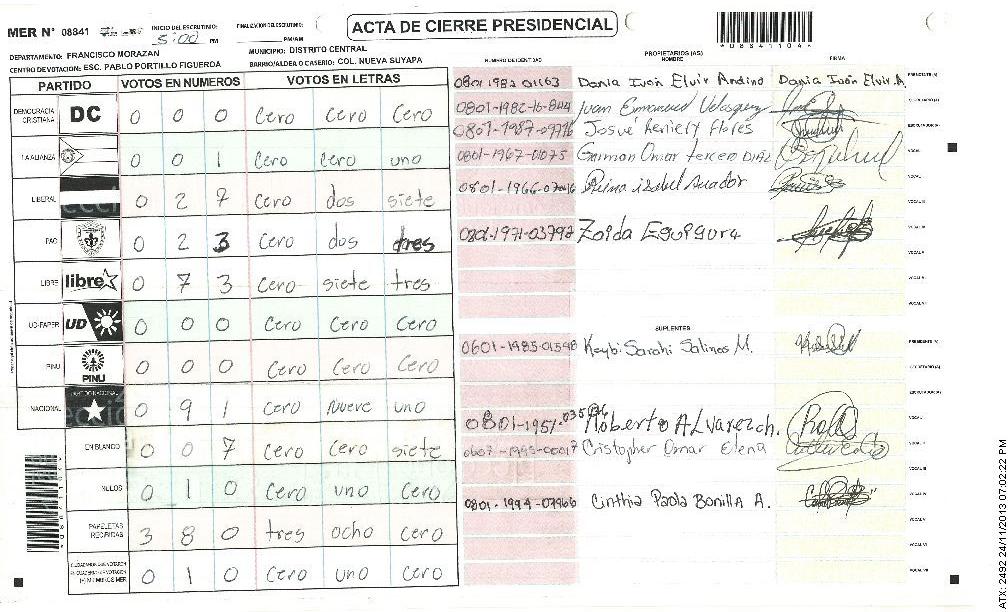 MER N° 08841 INICIO DEL ESCRUTINIO: 5:00 PM FINALIZACION DEL ESCRUTINIO: PM/AM ACTA DE CIERRE PRESIDENCIAL
DEPARTAMENTO: FRANCISCO MORAZAN MUNICIPIO: DISTRITO CENTRAL
CENTRO DE VOTACION: ESC. PABLO PORTILLO FIGUEROA BARRIO/ALDEA O CASERIO: COL. NUEVA SUYAPA
PARTIDO VOTOS EN NUMEROS VOTOS EN LETRAS
DEMOCRACIA CRISTIANA DC 0 0 0 Cero Cero Cero
LA ALIANZA 0 0 1 Cero Cero uno
LIBERAL 0 2 7 Cero dos siete
PAC 0 2 3 Cero dos tres
LIBRE libre 0 7 3 Cero siete tres
UD-FAPER UD 0 0 0 Cero Cero Cero
PINU PINU 0 0 0 Cero Cero Cero
NACIONAL PARTIDO NACIONAL 0 9 1 Cero nueve uno
EN BLANCO 0 0 7 Cero Cero siete
NULOS 0 1 0 Cero uno Cero
PAPELETAS RECIBIDAS 3 8 0 tres ocho Cero
0 1 0 Cero uno Cero
*08841104*
NUMERO DE IDENTIDAD PROPIETARIOS (AS) NOMBRE FIRMA
0801 1982 01163 Dania Iván Elvir Andino Dania Iván Elvir A. PRESIDENTE (A)
0801-1982-16-844 Juan Emmanuel Velasquez SECRETARIO (A)
0801-1987-09776 Josué Heniely Flores ESCRUTADOR (A)
0801-1967-01075 German Omar tercero Diaz VOCAL I
Reina isabel Amador
0801-1971-03792 Zoida Eguigura
SUPLENTES
0601-1985-01598 Keybi Sarahi Salinas M. PRESIDENTE (A)
SECRETARIO (A)
ESCRUTADOR (A)
0801-1951- Roberto ALvarez ch.
Cristopher Omar Elena
0801-1994-07966 Cinthia Paola Bonilla A.
ATX: 2492 24/11/2013 07:02:22 PM